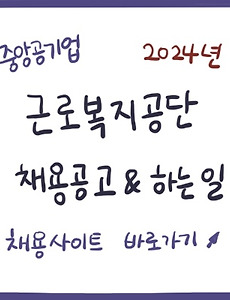 중앙공기업 2024년
근로복지공단
채용공고 & 하는 일
채용사이트 바로가기